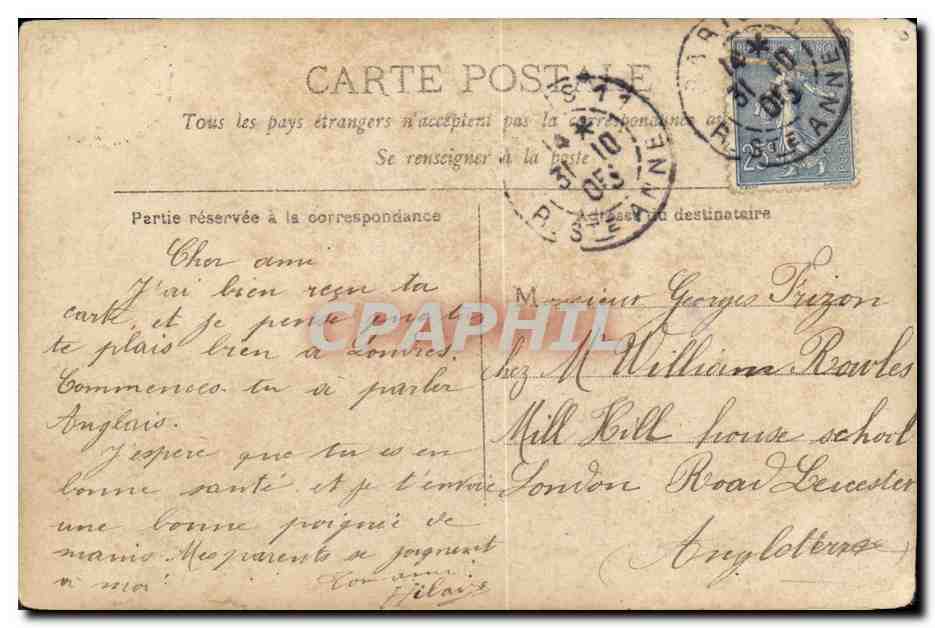 CARTE POSTALE
Tous les pays étrangers n'acceptent pas la correspondance au
Se renseigner à la poste
Partie réservée à la correspondance
Adresse du destinataire
Cher ami
J'ai bien reçu ta
carte, et je pense que tu
te plais bien à Londres.
Commences-tu à parler
Anglais.
J'espère que tu es en
bonne santé et je t'envoie
une bonne poignée de
mains. Mes parents se joignent
à moi
Ton ami
Hilaire
Monsieur Georges Frizon
chez M William Rowles
Mill Hill house school
London Road Leicester
Angleterre
14 * 10
31 10
05
R. STE ANNE
PARIS
14 * 10
31 10
05
R. STE ANNE
25
CPAPHIL